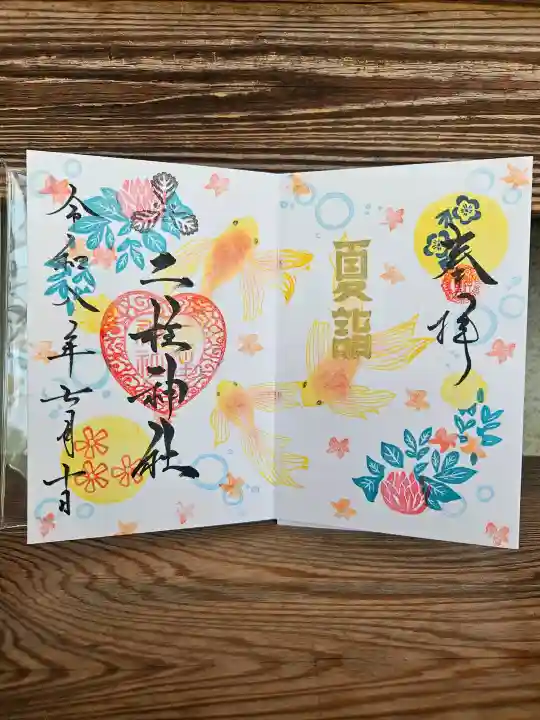 奉拝
夏詣
二柱神社
令和八年七月十日